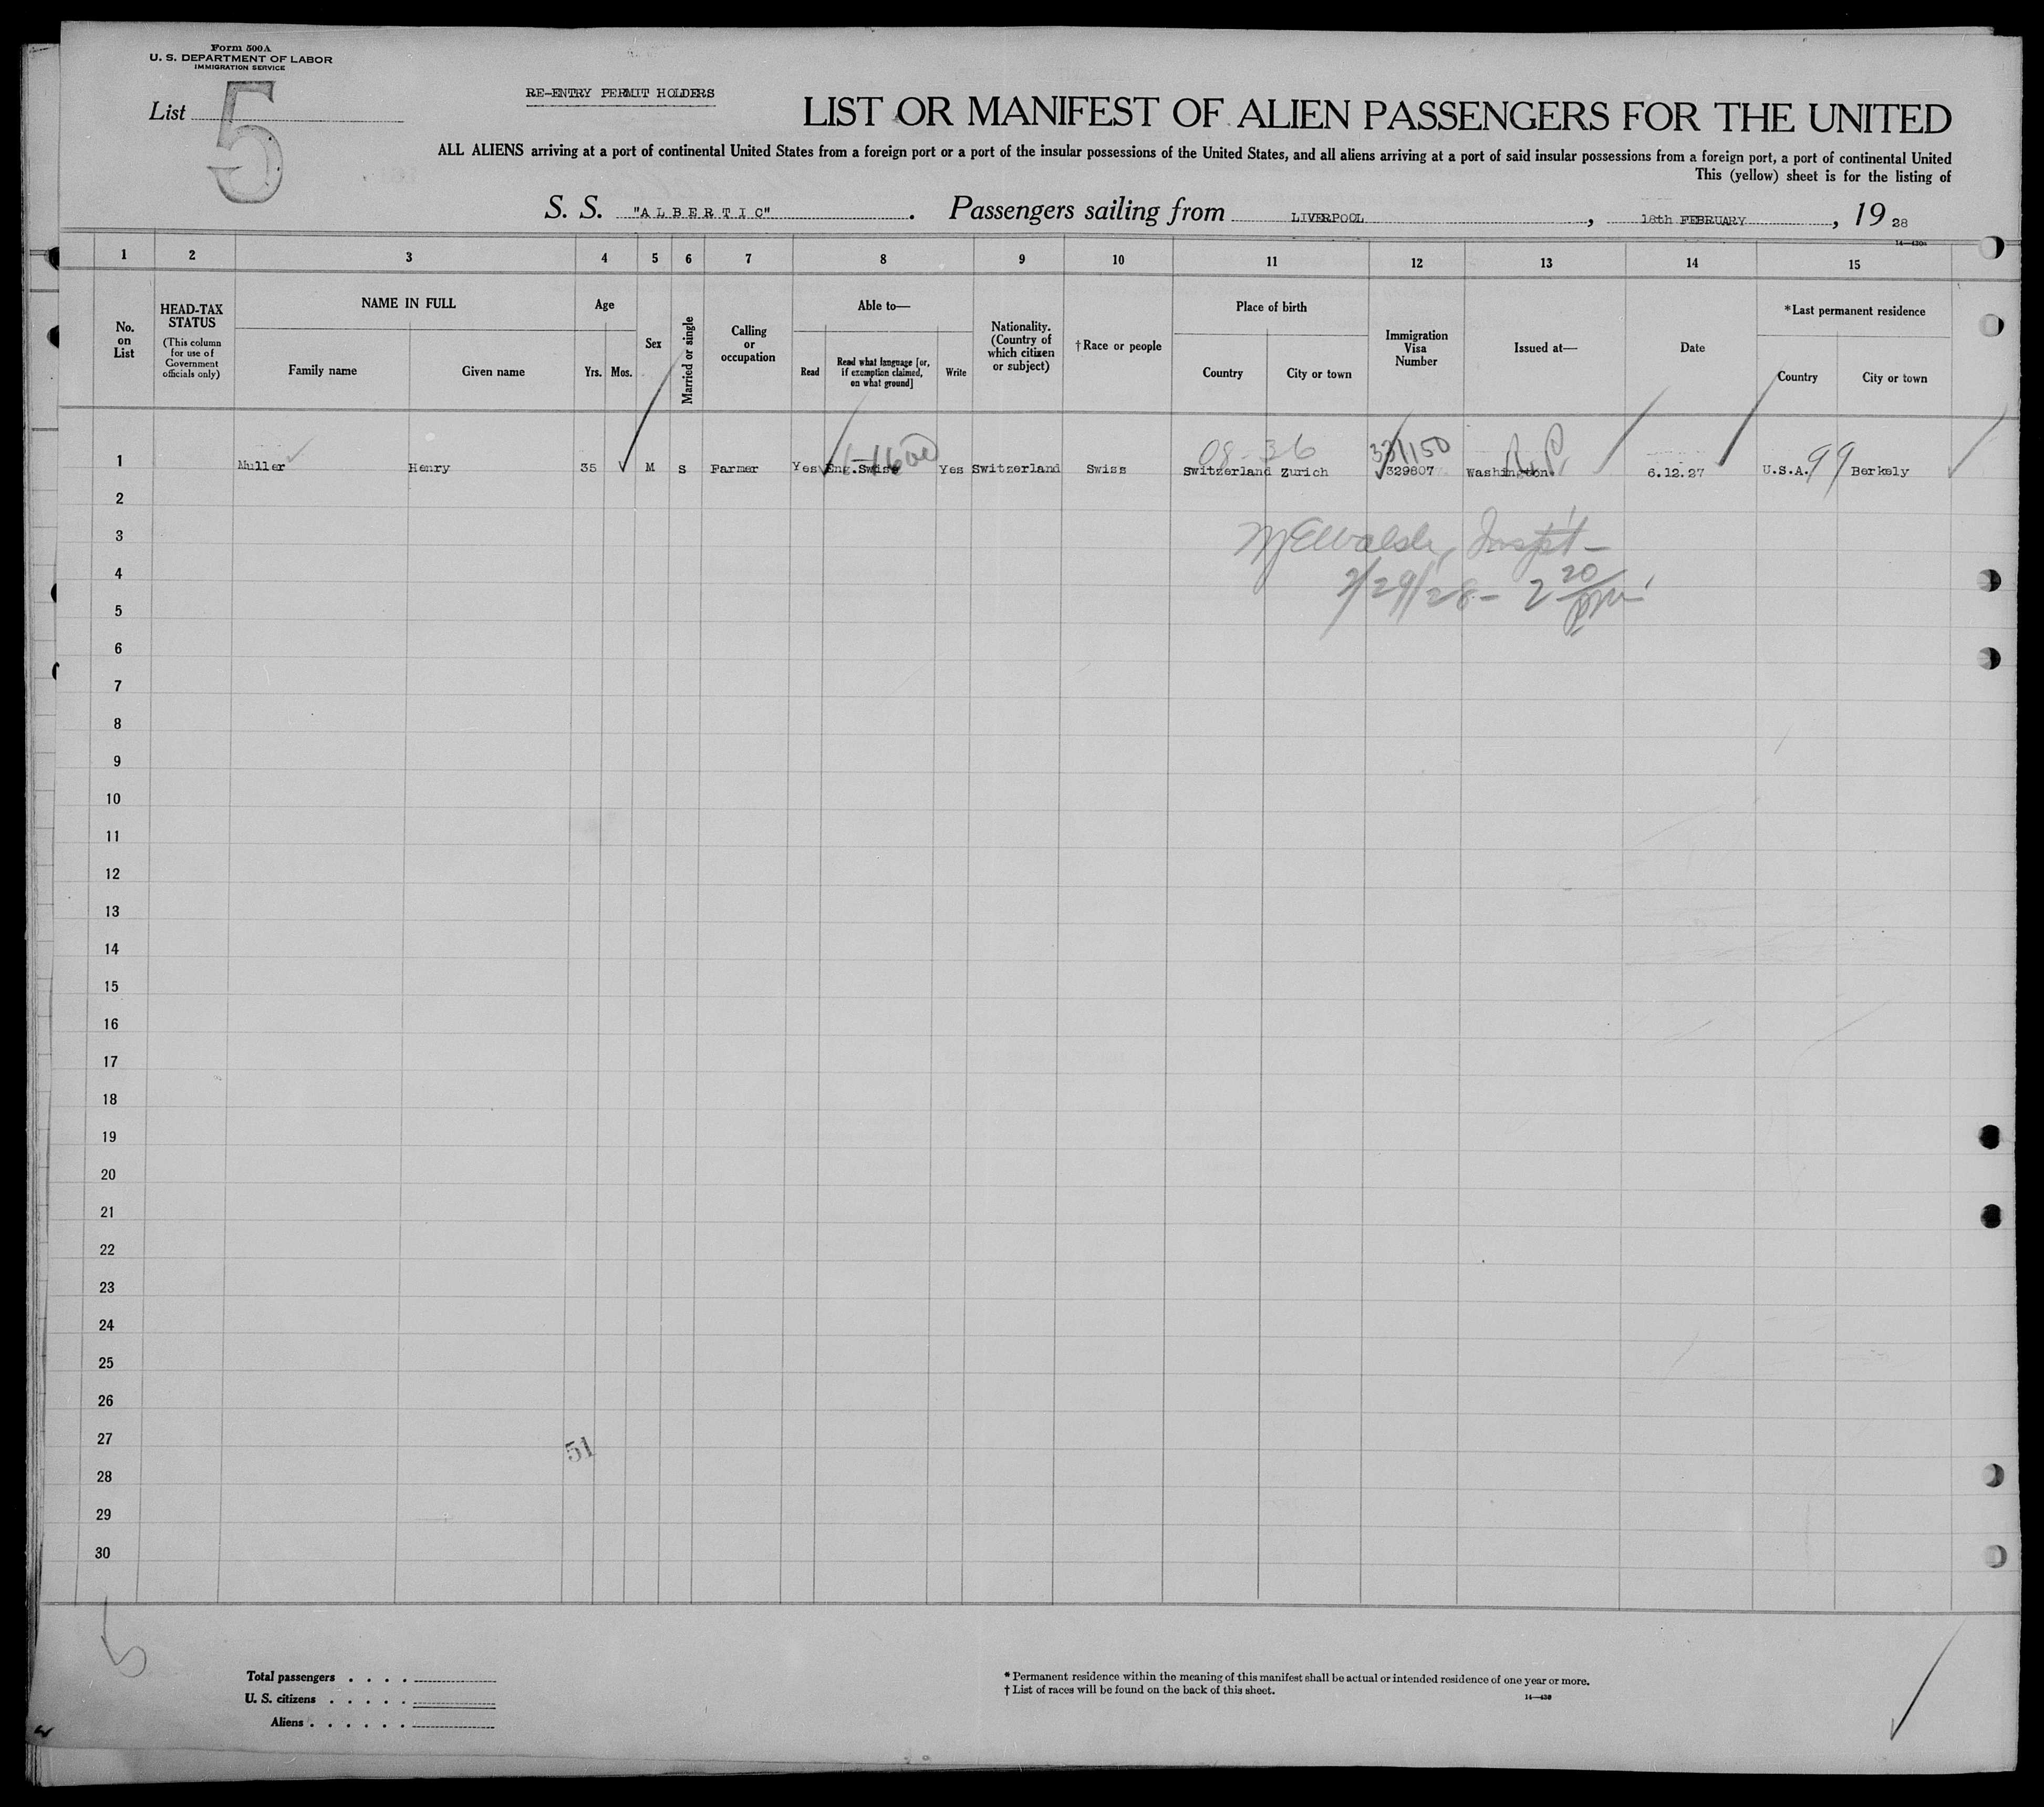 Form 500A
U. S. DEPARTMENT OF LABOR
IMMIGRATION SERVICE
List 5
RE-ENTRY PERMIT HOLDERS
LIST OR MANIFEST OF ALIEN PASSENGERS FOR THE UNITED
ALL ALIENS arriving at a port of continental United States from a foreign port or a port of the insular possessions of the United States, and all aliens arriving at a port of said insular possessions from a foreign port, a port of continental United
This (yellow) sheet is for the listing of
S. S. "ALBERTIC". Passengers sailing from LIVERPOOL, 18th FEBRUARY, 19 28
14—430a
1 2 3 4 5 6 7 8 9 10 11 12 13 14 15
No. on List
HEAD-TAX STATUS (This column for use of Government officials only)
NAME IN FULL
Family name Given name
Age
Yrs. Mos.
Sex
Married or single
Calling or occupation
Able to—
Read Read what language [or, if exemption claimed, on what ground] Write
Nationality. (Country of which citizen or subject)
†Race or people
Place of birth
Country City or town
Immigration Visa Number
Issued at—
Date
*Last permanent residence
Country City or town
08-36 331150 R.P.
1 Muller Henry 35 M S Farmer Yes Eng.Swiss Yes Switzerland Swiss Switzerland Zurich 329807 Washington. 6.12.27 U.S.A. 99 Berkely
2
3 Walsh, Insp't—
4 2/29/28 - 2 20 pm
5
6
7
8
9
10
11
12
13
14
15
16
17
18
19
20
21
22
23
24
25
26
27 51
28
29
30
5
Total passengers . . . .
U. S. citizens . . . . .
Aliens . . . . . .
* Permanent residence within the meaning of this manifest shall be actual or intended residence of one year or more.
† List of races will be found on the back of this sheet.
14—430